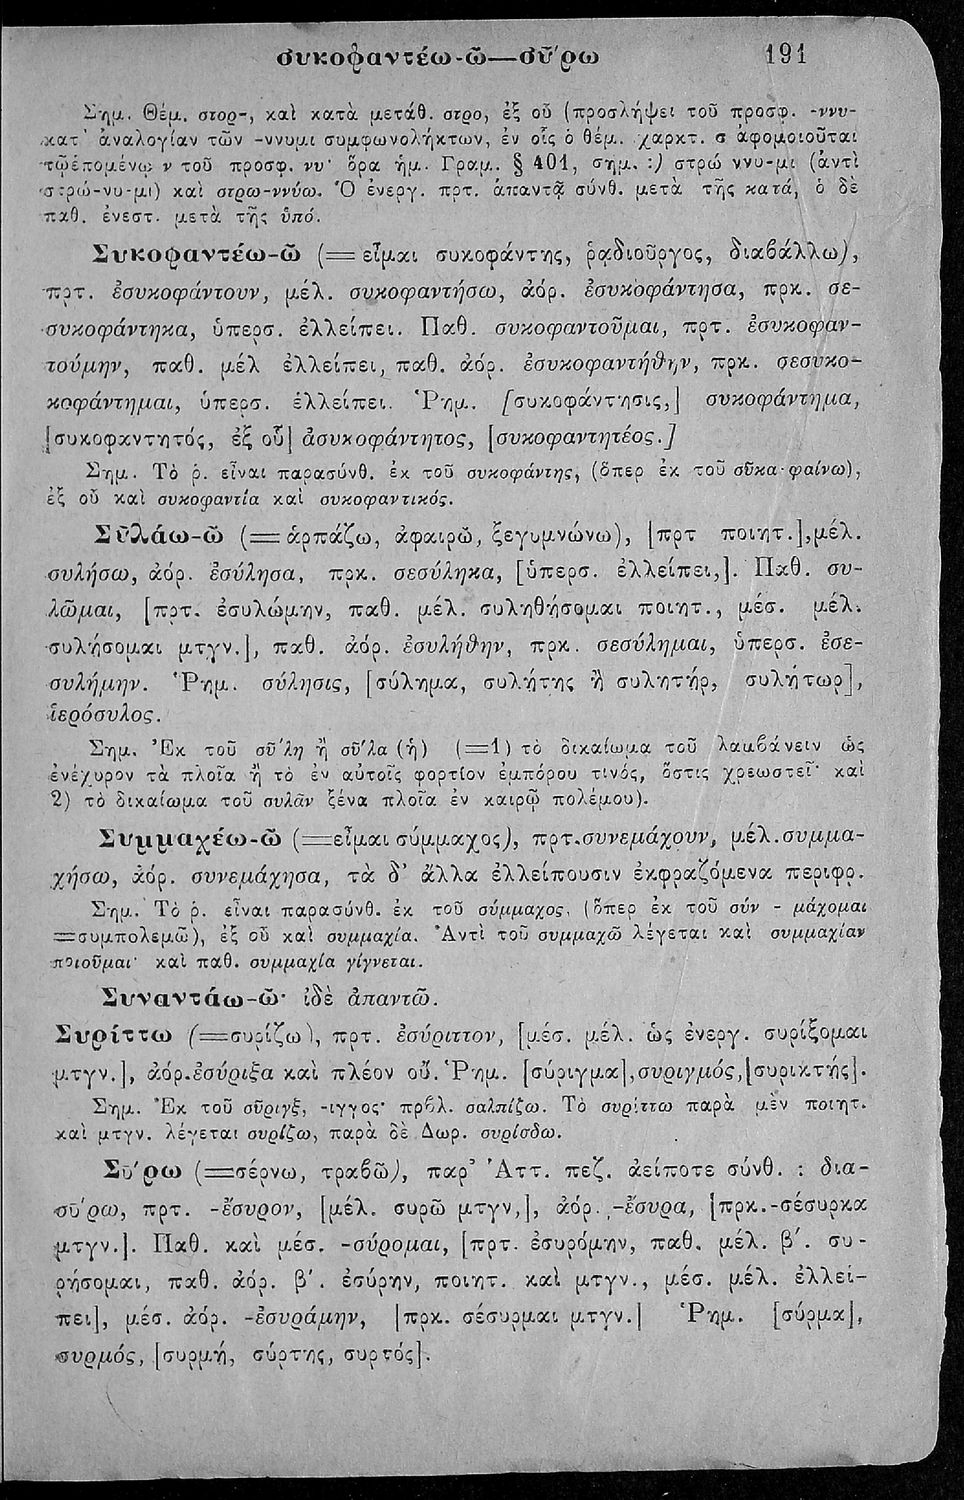 συκοφαντέω-ῶ—σῡ́ρω 191
Σημ. Θέμ. στορ-, καὶ κατὰ μετάθ. στρο, ἐξ οὗ (προσλήψει τοῦ προσφ. -ννυ-
κατ' ἀναλογίαν τῶν -ννυμι συμφωνολήκτων, ἐν οἷς ὁ θέμ. χαρκτ. σ ἀφομοιοῦται
τῷ ἑπομένῳ ν τοῦ προσφ. νυ· ὅρα ἡμ. Γραμ. § 401, σημ. :) στρώ ννυ-μι (ἀντὶ
στρώ-νυ-μι) καὶ στρω-ννύω. Ὁ ἐνεργ. πρτ. ἀπαντᾷ σύνθ. μετὰ τῆς κατά, ὁ δὲ
παθ. ἐνεστ. μετὰ τῆς ὑπό.
Συκοφαντέω-ῶ (= εἶμαι συκοφάντης, ῥᾳδιοῦργος, διαβάλλω),
πρτ. ἐσυκοφάντουν, μέλ. συκοφαντήσω, ἀόρ. ἐσυκοφάντησα, πρκ. σε-
συκοφάντηκα, ὑπερσ. ἐλλείπει. Παθ. συκοφαντοῦμαι, πρτ. ἐσυκοφαν-
τούμην, παθ. μέλ ἐλλείπει, παθ. ἀόρ. ἐσυκοφαντήθην, πρκ. σεσυκο-
κοφάντημαι, ὑπερσ. ἐλλείπει. Ῥημ. [συκοφάντησις,] συκοφάντημα,
[συκοφαντητός, ἐξ οὗ] ἀσυκοφάντητος, [συκοφαντητέος.]
Σημ. Τὸ ῥ. εἶναι παρασύνθ. ἐκ τοῦ συκοφάντης, (ὅπερ ἐκ τοῦ σῦκα-φαίνω),
ἐξ οὗ καὶ συκοφαντία καὶ συκοφαντικός.
Σῡλάω-ῶ (= ἁρπάζω, ἀφαιρῶ, ξεγυμνώνω), [πρτ ποιητ.],μέλ.
συλήσω, ἀόρ. ἐσύλησα, πρκ. σεσύληκα, [ὑπερσ. ἐλλείπει,]. Παθ. συ-
λῶμαι, [πρτ. ἐσυλώμην, παθ. μέλ. συληθήσομαι ποιητ., μέσ. μέλ.
συλήσομαι μτγν.], παθ. ἀόρ. ἐσυλήθην, πρκ. σεσύλημαι, ὑπερσ. ἐσε-
συλήμην. Ῥημ. σύλησις, [σύλημα, συλήτης ἢ συλητήρ, συλήτωρ],
ἱερόσυλος.
Σημ. Ἐκ τοῦ σῡ́λη ἢ σῡ́λα (ἡ) (=1) τὸ δικαίωμα τοῦ λαμβάνειν ὡς
ἐνέχυρον τὰ πλοῖα ἢ τὸ ἐν αὐτοῖς φορτίον ἐμπόρου τινός, ὅστις χρεωστεῖ· καὶ
2) τὸ δικαίωμα τοῦ συλᾶν ξένα πλοῖα ἐν καιρῷ πολέμου).
Συμμαχέω-ῶ (=εἶμαι σύμμαχος), πρτ.συνεμάχουν, μέλ.συμμα-
χήσω, ἀόρ. συνεμάχησα, τὰ δ' ἄλλα ἐλλείπουσιν ἐκφραζόμενα περιφρ.
Σημ. Τὸ ῥ. εἶναι παρασύνθ. ἐκ τοῦ σύμμαχος, (ὅπερ ἐκ τοῦ σύν - μάχομαι
=συμπολεμῶ), ἐξ οὗ καὶ συμμαχία. Ἀντὶ τοῦ συμμαχῶ λέγεται καὶ συμμαχίαν
ποιοῦμαι· καὶ παθ. συμμαχία γίγνεται.
Συναντάω-ῶ· ἰδὲ ἀπαντῶ.
Συρίττω (=συρίζω), πρτ. ἐσύριττον, [μέσ. μέλ. ὡς ἐνεργ. συρίξομαι
μτγν.], ἀόρ.ἐσύριξα καὶ πλέον οὔ. Ῥημ. [σύριγμα],συριγμός,[συρικτής].
Σημ. Ἐκ τοῦ σῦριγξ, -ιγγος· πρβλ. σαλπίζω. Τὸ συρίττω παρὰ μὲν ποιητ.
καὶ μτγν. λέγεται συρίζω, παρὰ δὲ Δωρ. συρίσδω.
Σῡ́ρω (=σέρνω, τραβῶ), παρ' Ἀττ. πεζ. ἀείποτε σύνθ. : δια-
σῡ́ρω, πρτ. -ἔσυρον, [μέλ. συρῶ μτγν,], ἀόρ. -ἔσυρα, [πρκ.-σέσυρκα
μτγν.]. Παθ. καὶ μέσ. -σύρομαι, [πρτ. ἐσυρόμην, παθ. μέλ. β'. συ-
ρήσομαι, παθ. ἀόρ. β'. ἐσύρην, ποιητ. καὶ μτγν., μέσ. μέλ. ἐλλεί-
πει], μέσ. ἀόρ. -ἐσυράμην, [πρκ. σέσυρμαι μτγν.] Ῥημ. [σύρμα],
συρμός, [συρμή, σύρτης, συρτός].